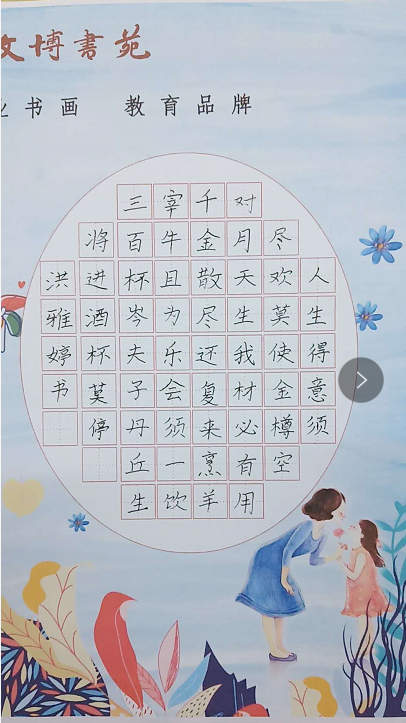 博書苑
书画 教育品牌
人生得意须
尽欢莫使金樽空
对月天生我材必有用
千金散尽还复来烹羊
宰牛且为乐会须一饮
三百杯岑夫子丹丘生
将进酒杯莫停
洪雅婷书